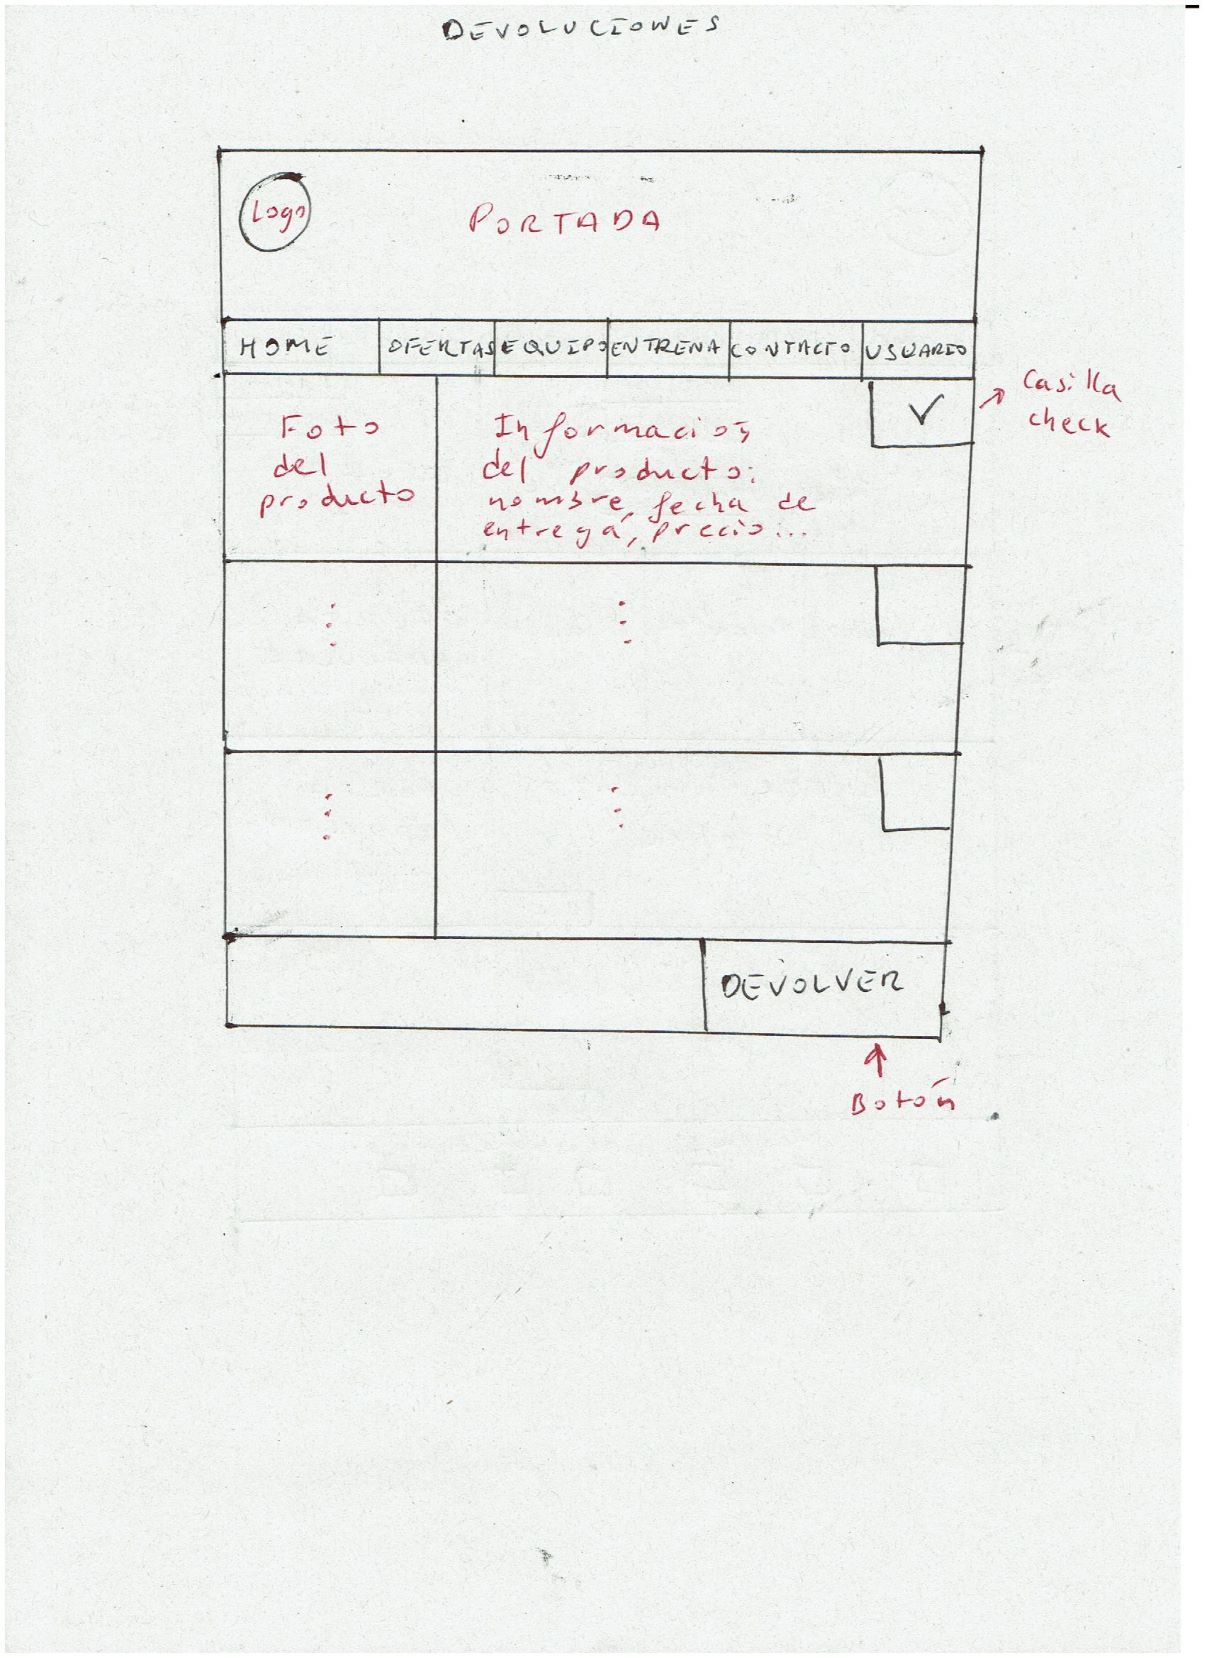 DEVOLUCIONES
Logo
PORTADA
HOME OFERTAS EQUIPO ENTRENA CONTACTO USUARIO
Casilla
check
Foto
del
producto
Información
del producto:
nombre, fecha de
entrega, precio...
DEVOLVER
Botón